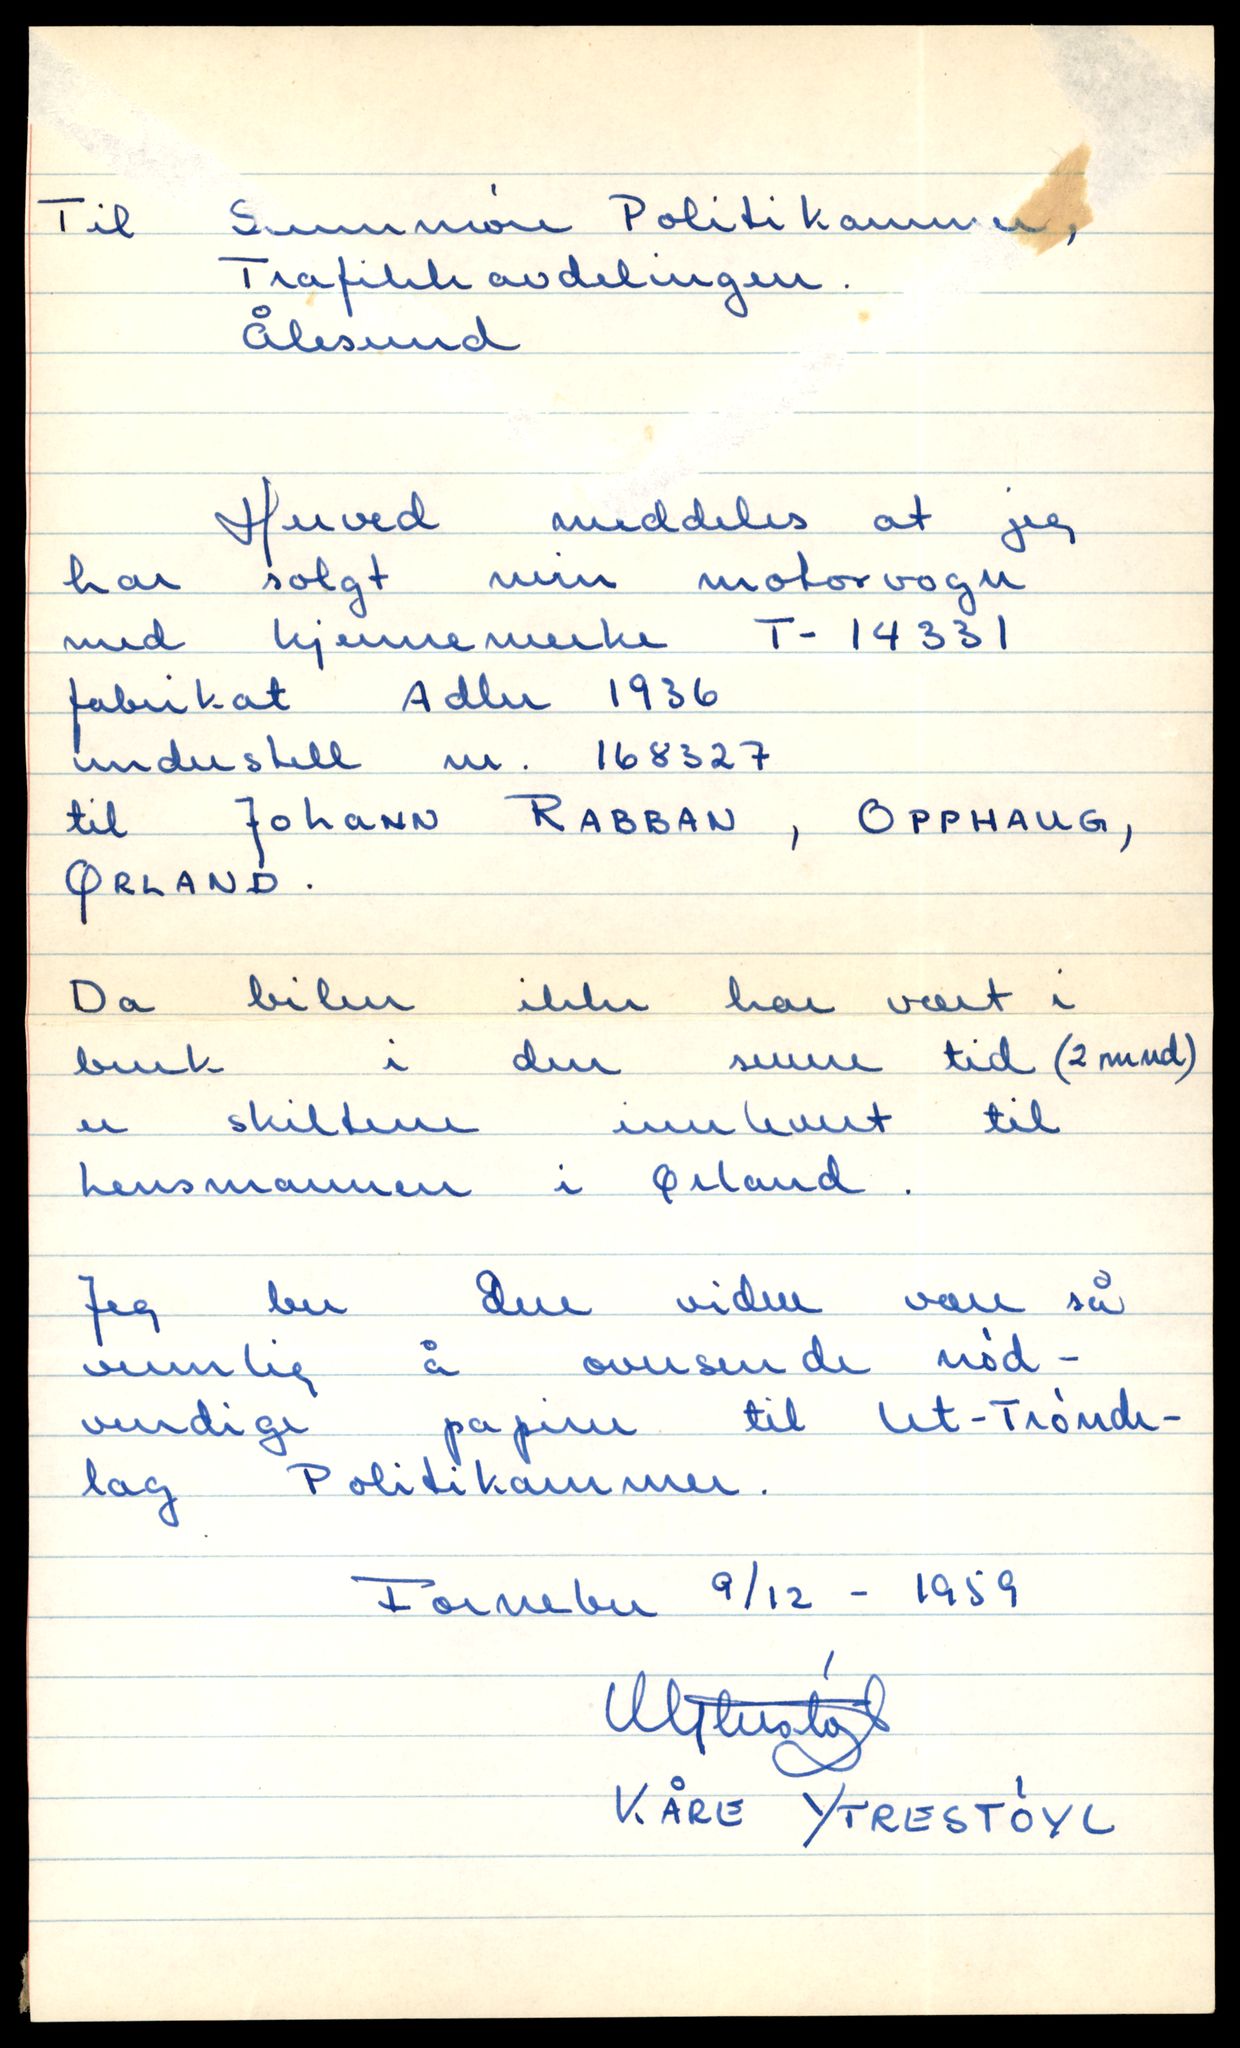 Til Sunnmøre Politikammer,
Trafikkavdelingen.
Ålesund
Herved meddeles at jeg
har solgt min motorvogn
med kjennemerke T-14331
fabrikat Adler 1936
understell nr. 168327
til Johann RABBAN, OPPHAUG,
ØRLAND.
Da bilen ikke har vært i
bruk i den senere tid (2 mnd)
er skiltene innlevert til
lensmannen i Ørland.
Jeg ber Dere videre være så
vennlig å oversende nød-
vendige papirer til Ut-Trønde-
lag Politikammer.
Fornebu 9/12 - 1959
KÅRE YTRESTØYL